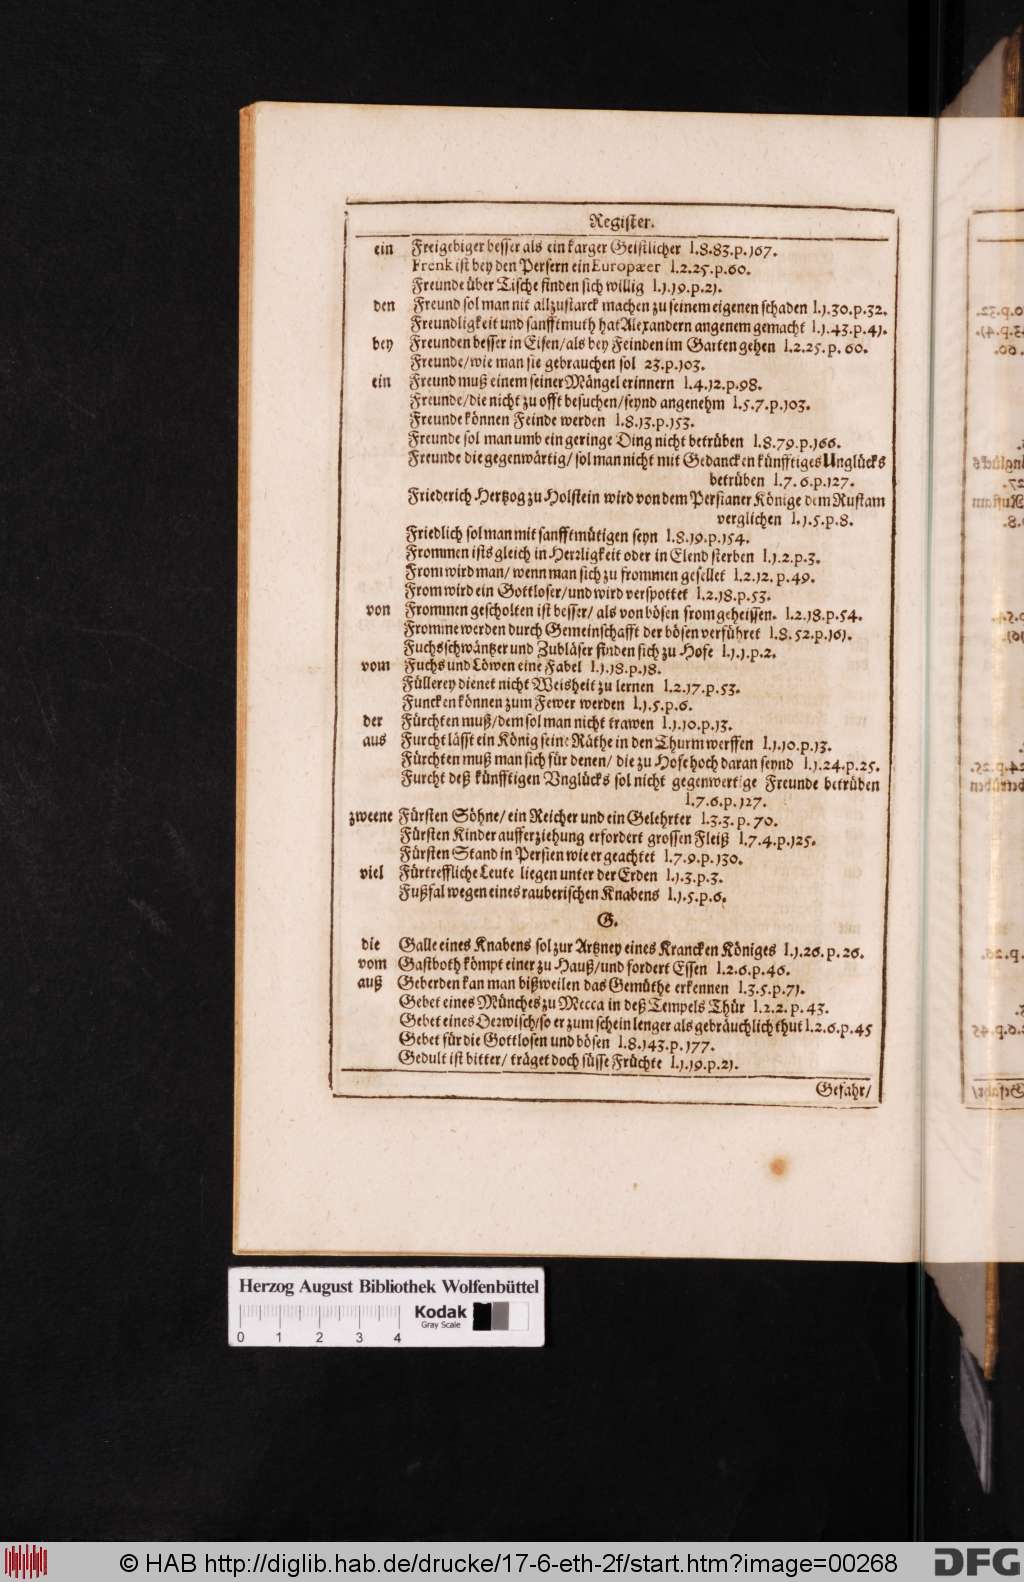 Register.
ein Freigebiger besser als ein karger Geistlicher l.8.83.p.167.
Frenk ist bey den Persern ein Europæer l.2.25.p.60.
Freunde über Tische finden sich willig l.1.19.p.21.
den Freund sol man nit allzustarck machen zu seinem eigenen schaden l.1.30.p.32.
Freundligkeit und sanfftmuth hat Alexandern angenem gemacht l.1.43.p.41.
bey Freunden besser in Eisen/als bey Feinden im Garten gehen l.2.25.p.60.
Freunde/wie man sie gebrauchen sol 23.p.103.
ein Freund muß einem seiner Mängel erinnern l.4.12.p.98.
Freunde/die nicht zu offt besuchen/seynd angenehm l.5.7.p.103.
Freunde können Feinde werden l.8.13.p.153.
Freunde sol man umb ein geringe Ding nicht betrüben l.8.79.p.166.
Freunde die gegenwärtig/ sol man nicht mit Gedancken künfftiges Unglücks
betrüben l.7.6.p.127.
Friederich Hertzog zu Holstein wird von dem Persianer Könige dem Rustam
verglichen l.1.5.p.8.
Friedlich sol man mit sanfftmütigen seyn l.8.19.p.154.
Frommen ists gleich in Herrligkeit oder in Elend sterben l.1.2.p.3.
From wird man/ wenn man sich zu frommen gesellet l.2.12.p.49.
From wird ein Gottloser/und wird verspottet l.2.18.p.53.
von Frommen gescholten ist besser/ als von bösen from geheissen. l.2.18.p.54.
Fromme werden durch Gemeinschafft der bösen verführet l.8.52.p.161.
Fuchsschwäntzer und Zubläser finden sich zu Hofe l.1.1.p.2.
vom Fuchs und Löwen eine Fabel l.1.18.p.18.
Füllerey dienet nicht Weisheit zu lernen l.2.17.p.53.
Funcken können zum Fewer werden l.1.5.p.6.
der Fürchten muß/dem sol man nicht trawen l.1.10.p.13.
aus Furcht lässt ein König seine Räthe in den Thurm werffen l.1.10.p.13.
Fürchten muß man sich für denen/ die zu Hofe hoch daran seynd l.1.24.p.25.
Furcht deß künfftigen Vnglücks sol nicht gegenwertige Freunde betrüben
l.7.6.p.127.
zweene Fürsten Söhne/ ein Reicher und ein Gelehrter l.3.3.p.70.
Fürsten Kinder aufferziehung erfordert grossen Fleiß l.7.4.p.125.
Fürsten Stand in Persien wie er geachtet l.7.9.p.130.
viel Fürtreffliche Leute liegen unter der Erden l.1.3.p.3.
Fußfal wegen eines rauberischen Knabens l.1.5.p.6.
G.
die Galle eines Knabens sol zur Artzney eines Krancken Königes l.1.26.p.26.
vom Gastboth kömpt einer zu Hauß/und fordert Essen l.2.6.p.46.
auß Geberden kan man bißweilen das Gemüthe erkennen l.3.5.p.71.
Gebet eines Münches zu Mecca in deß Tempels Thür l.2.2.p.43.
Gebet eines Derwisch/so er zum schein lenger als gebräuchlich thut l.2.6.p.45
Gebet für die Gottlosen und bösen l.8.143.p.177.
Gedult ist bitter/ träget doch süsse Früchte l.1.19.p.21.
Gefahr/
Herzog August Bibliothek Wolfenbüttel
Kodak
Gray Scale
0 1 2 3 4
© HAB http://diglib.hab.de/drucke/17-6-eth-2f/start.htm?image=00268
DFG